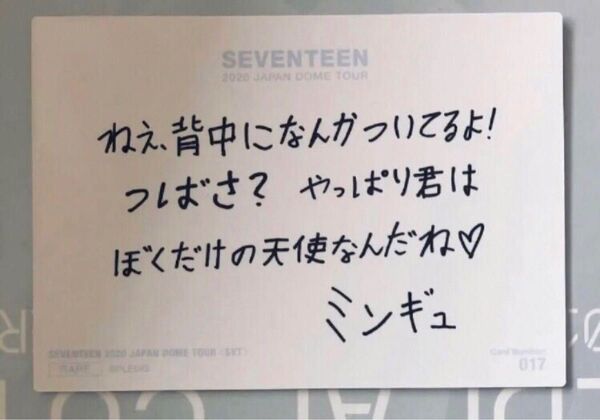 SEVENTEEN
2020 JAPAN DOME TOUR
ねぇ、背中になんかついてるよ!
つばさ? やっぱり君は
ぼくだけの天使なんだね♡
ミンギュ
SEVENTEEN 2020 JAPAN DOME TOUR <SVT>
RARE
Card Number
017